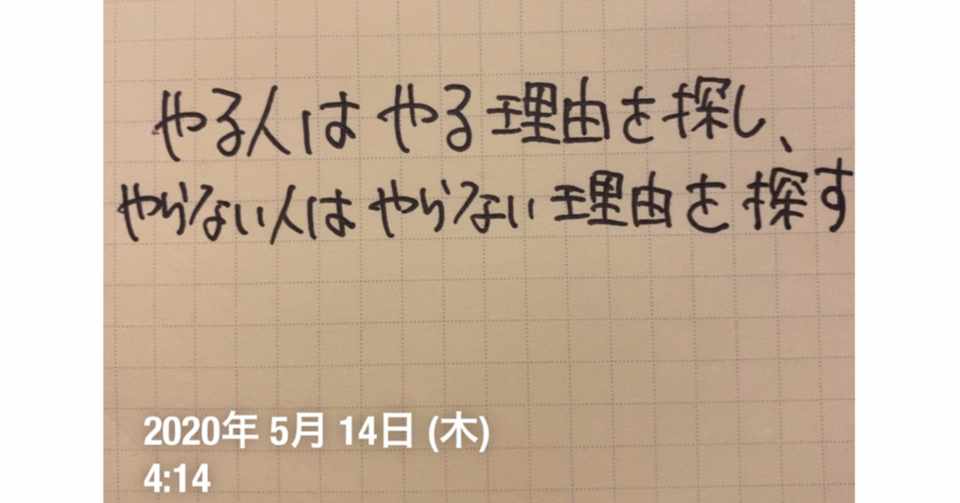 やる人はやる理由を探し、
やらない人はやらない理由を探す
2020年 5月 14日 (木)
4:14